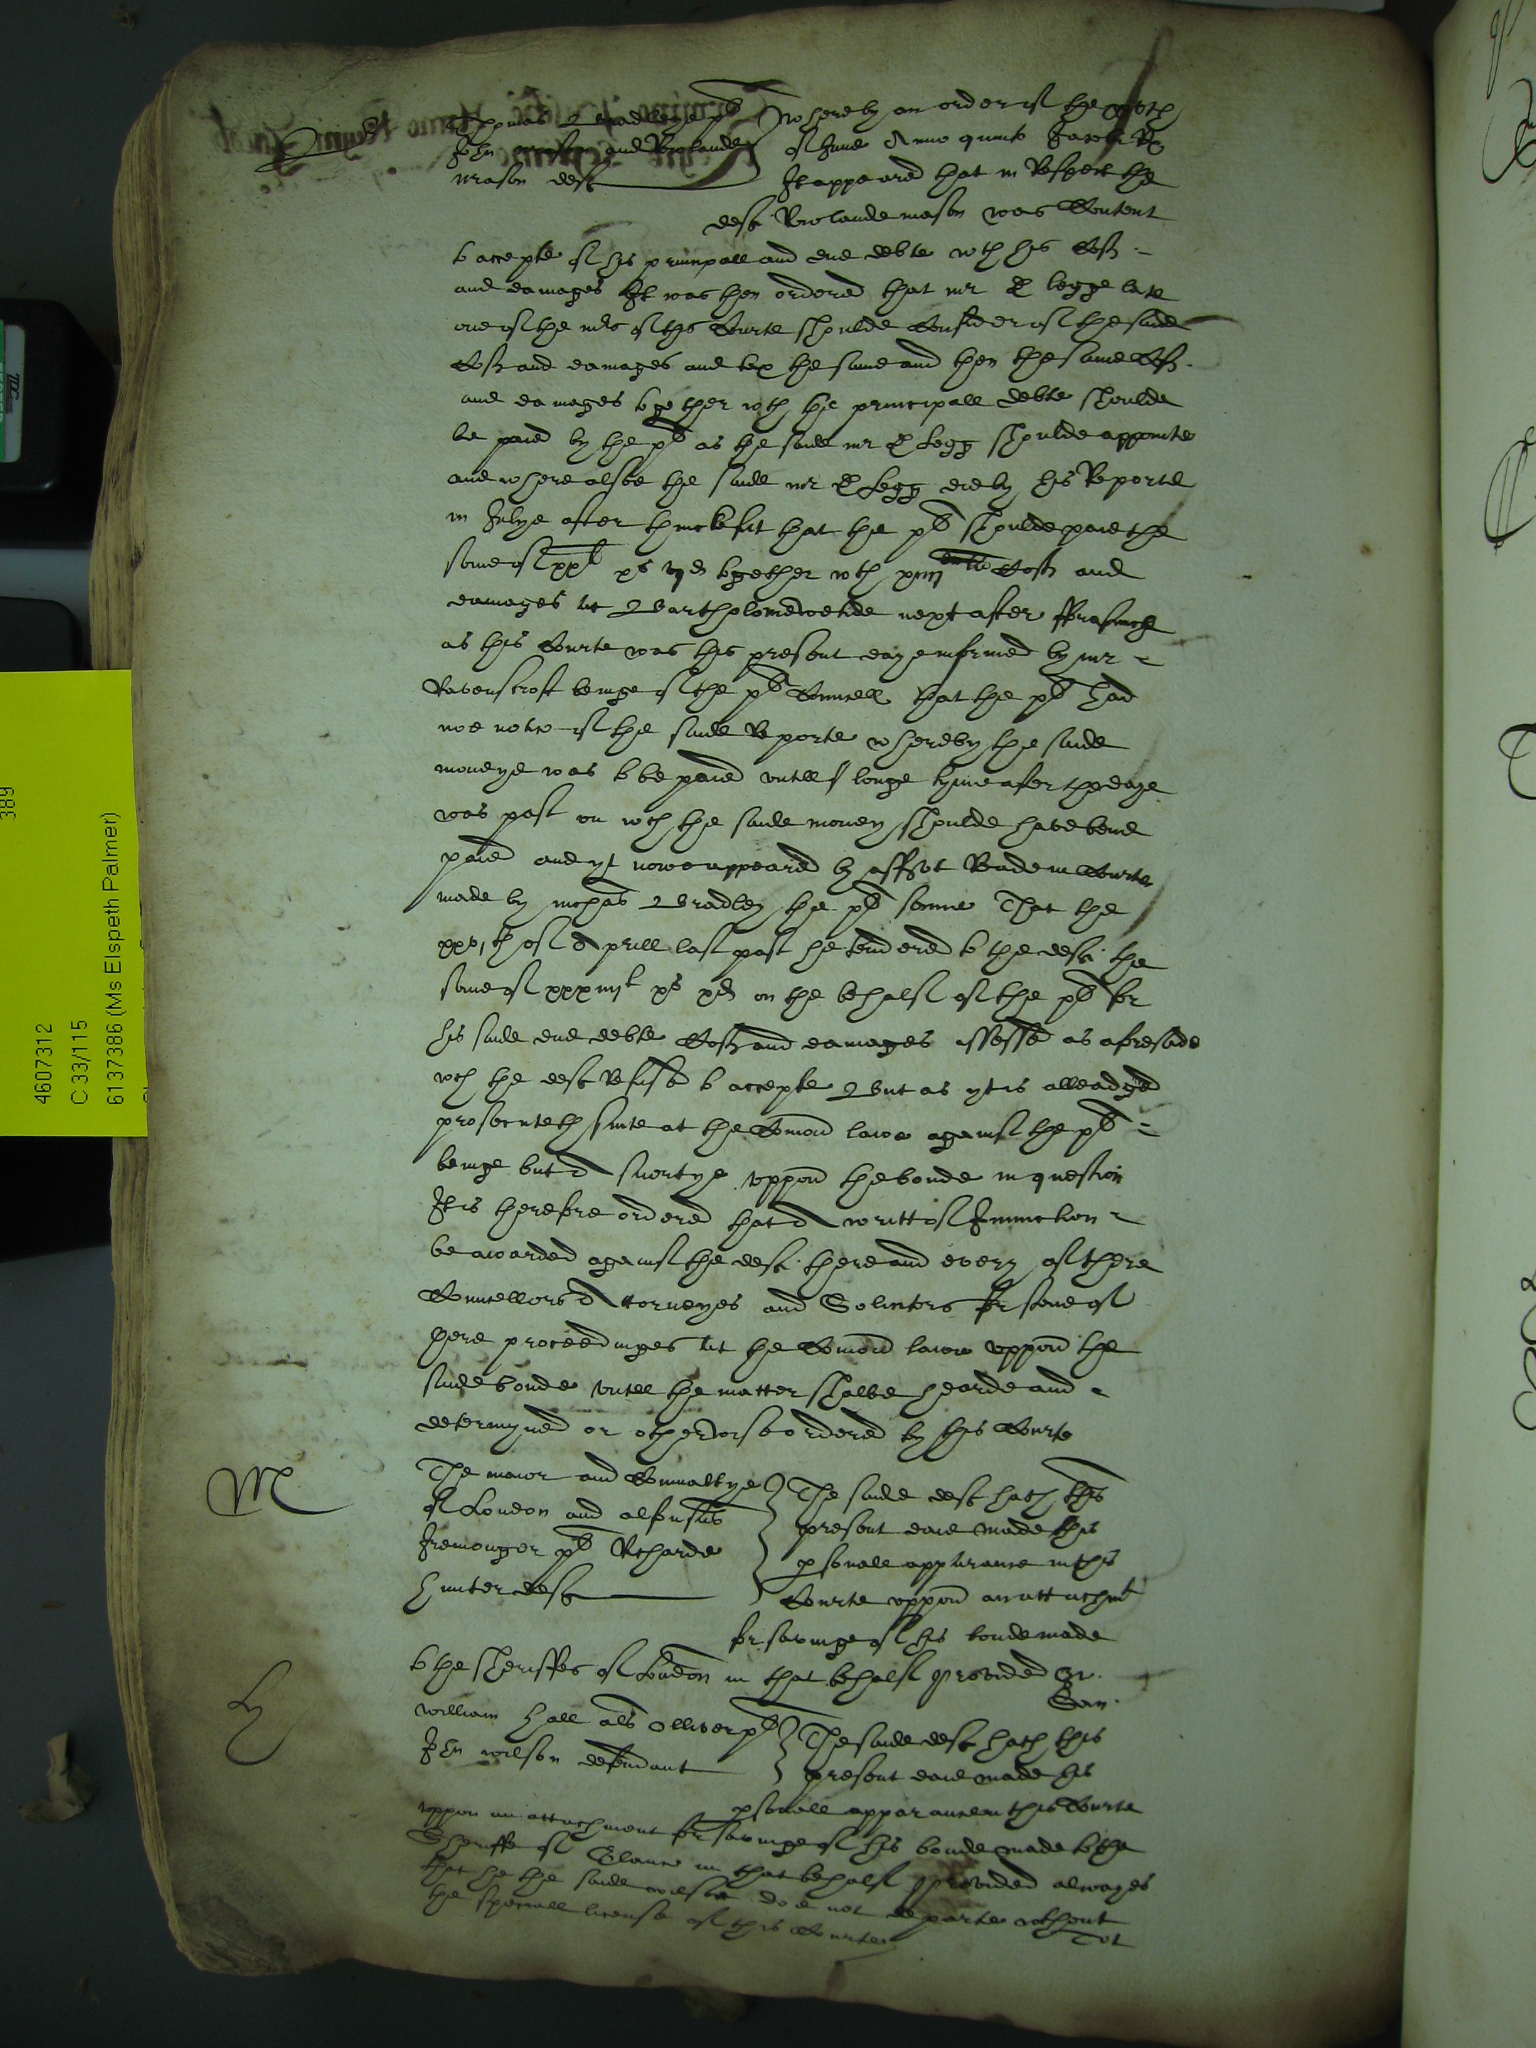 Thomas Bradleye pl Whereby an order of the xxth
John mason and Rowlande of June Anno quinto Jacobi Rx
mason defts It appeared that in Respect the
deft Rowlande mason was Content
to accepte of his principall and due debte wth his Costs
and damages It was then ordered that mr D legge late
one of the mrs of this Courte shoulde Consider of the saide
Costs and damages and tax the same and then the same Costs
and damages together wth the principall debte shoulde
be paied by the pl as the saide mr D Legg shoulde appointe
and where alsoe the saide mr D Legg did by his Reporte
in Julye after thincke fit that the pl shoulde paie the
some of xxl xs together wth Costs and
damages at Bartholomewetide next after fforasmch
as this Courte was this present daye informed by mr
Ravenscroft beinge of the pl Councell that the pl had
noe notice of the saide Reporte whereby the saide
moneye was to be paied untell longe tyme after the daye
was past on wch the saide money shoulde have bene
paied and yt nowe appeared by affidvt Read in Courte
made by Bradley the pl sonne That the
of Aprill last past he tendered to the deft the
some of xxxiiijl xs xd on the behalf of the pl for
his saide due debte Costs and damages assessed as aforesaide
wch the deft Refused to accepte But as yt is alleadged
prosecuteth suite at the Comon lawe against the pl
beinge but A suertye uppon the bonde in question
It is therefore ordered that A writt of Iniunction
be awarded against the defts there and every of there
Councellors Attorneyes and Solicitors for staie of
there proceedinges at the Comon lawe uppon the
saide bonde untell the matter shalbe hearde and
determyned or otherwise ordered by this Courte
M
The maior and Comnaltye The saide deft hath this
of London and present daie made his
Iremonger pl Richarde psonall apparance in this
Hunter deft Courte uppon an attachmt
for savinge of his bonde made
to the Sheriffes of London in that behalf provided &c
San
H
William Hall als Olliver pl The saide deft hath this
John Wilson defendant present daie made his
psonall apparance in this Courte
uppon an attachment for savinge of his bonde made to the
Sheriffe of in that behalf provided alwayes
that he the saide wilson doe not departe wthout
the speciall license of this Courte
4607312
C 33/115
6137386 (Ms Elspeth Palmer)
389